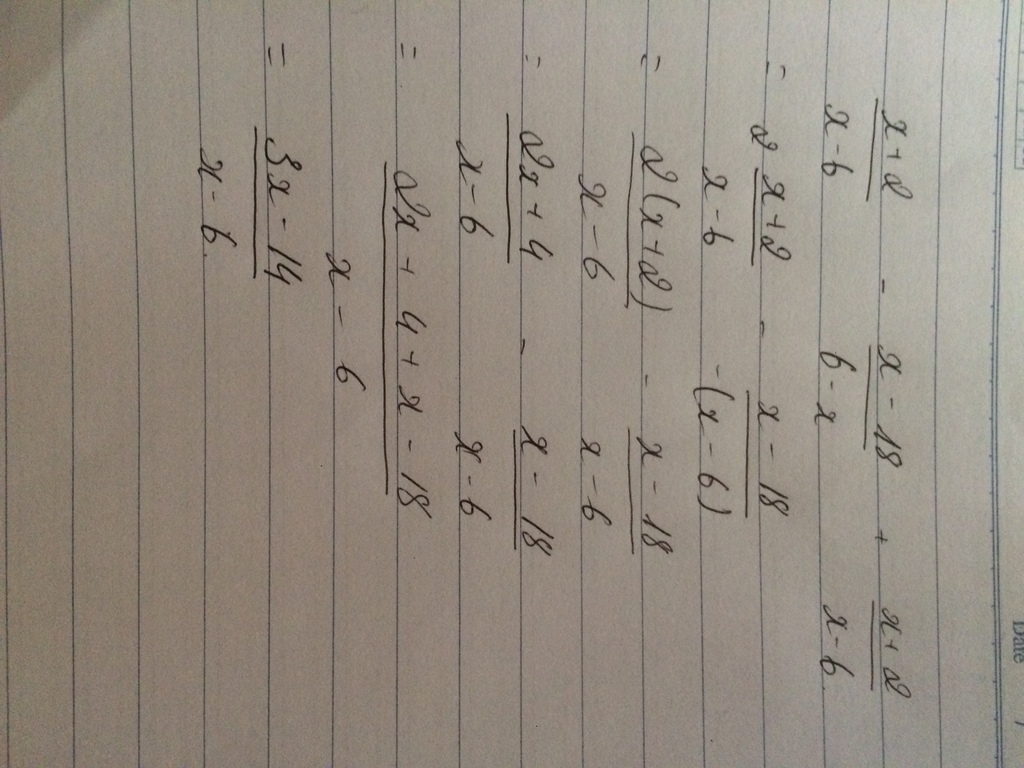 Date /
x+2 / x-6 - x-18 / 6-x + x+2 / x-6
= 2 x+2 / x-6 - x-18 / -(x-6)
= 2(x+2) / x-6 - x-18 / x-6
= 2x+4 / x-6 - x-18 / x-6
= 2x+4+x-18 / x-6
= 3x-14 / x-6.